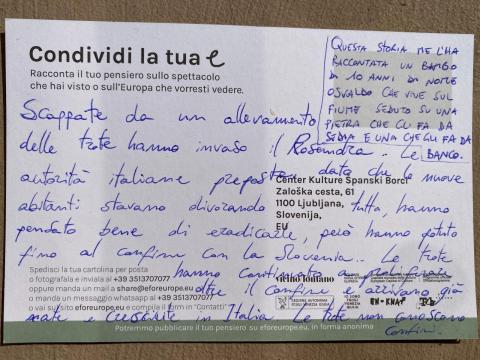 Condividi la tua e
Racconta il tuo pensiero sullo spettacolo
che hai visto o sull'Europa che vorresti vedere.
QUESTA STORIA ME L'HA
RACCONTATA UN BAMBO
DI 10 ANNI DI NOME
OSVALDO CHE VIVE SUL
FIUME SEDUTO SU UNA
PIETRA CHE GLI FA DA
SEDIA E UNA CHE GLI FA DA
BANCO.
Scappate da un allevamento
delle trote hanno invaso il Rosandra. Le
autorità italiane preposte, dato che le nuove
abitanti stavano divorando tutto, hanno
pensato bene di eradicarle, però hanno potuto
fino al confine con la Slovenia.. Le trote
hanno continuato a proliferare
oltre il confine e arrivano già
nate e cresciute in Italia. Le trote non conoscono
confini.
Center Kulture Španski Borci
Zaloška cesta, 61
1100 Ljubljana,
Slovenija,
EU
Spedisci la tua cartolina per posta
o fotografa e inviala al +39 3513707077
oppure manda un mail a share@eforeurope.eu
o manda un messaggio whatsapp al +39 3513707077
o vai su sito eforeurope.eu e compila il form in "Contatti"
vicino/lontano
REGIONE AUTONOMA
FRIULI VENEZIA GIULIA
IO SONO
FRIULI
VENEZIA
GIULIA
EN-KNAP
Potremmo pubblicare il tuo pensiero su eforeurope.eu, in forma anonima